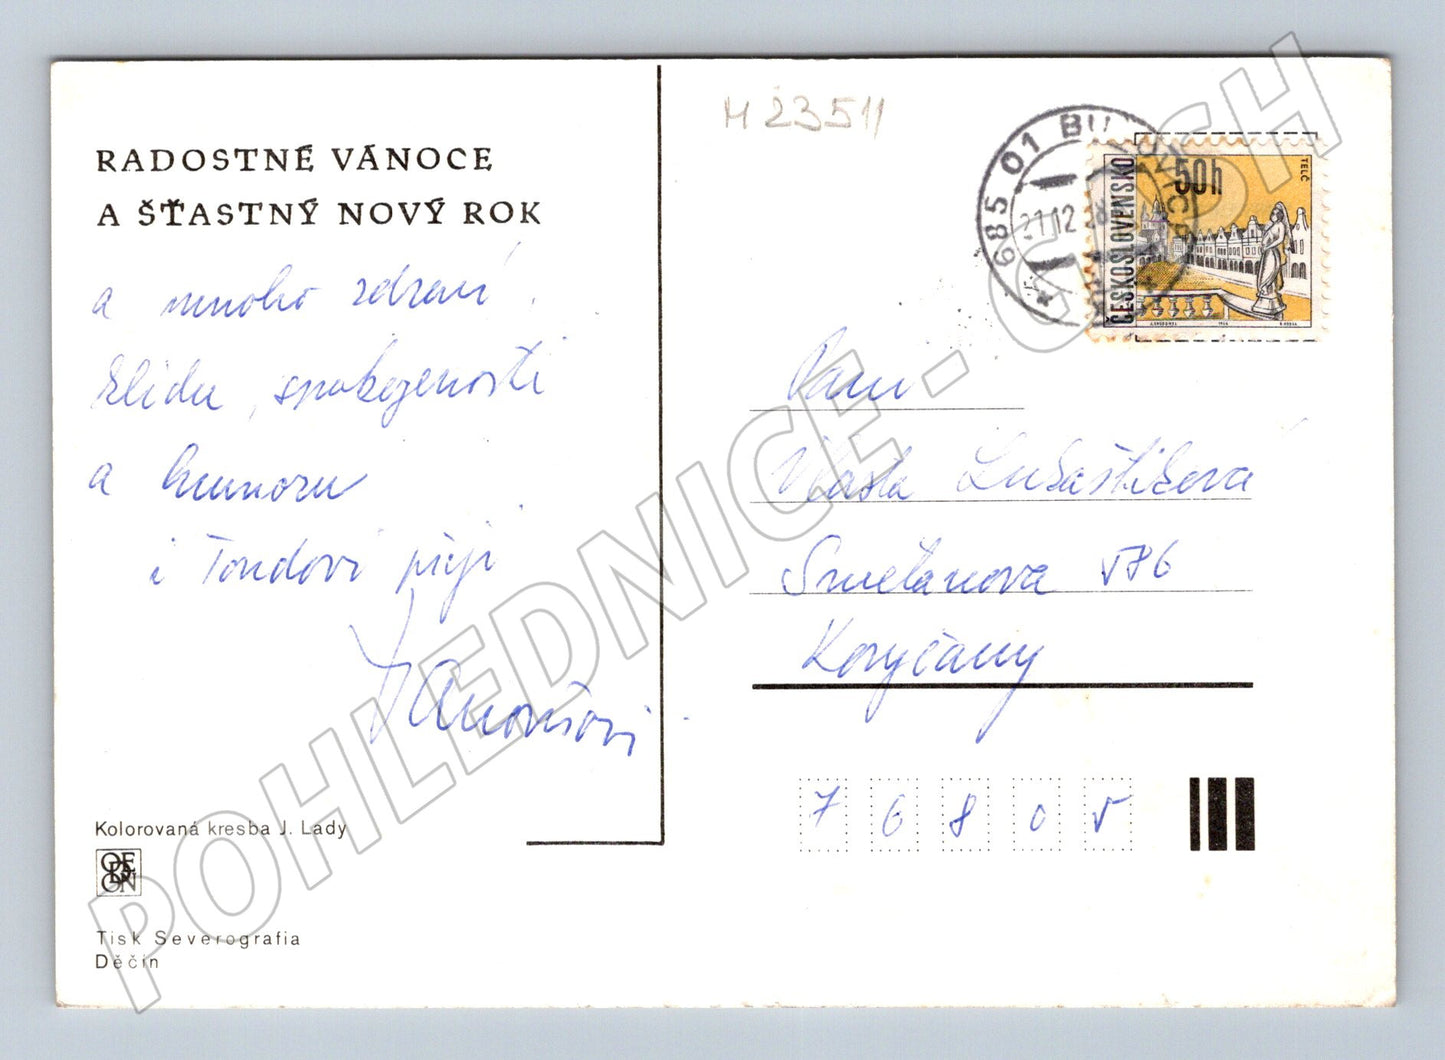 RADOSTNÉ VÁNOCE
A ŠŤASTNÝ NOVÝ ROK
a mnoho zdraví,
klidu, spokojenosti
a humoru
i Tondovi přejí
Kolorovaná kresba J. Lady
ODEON
Tisk Severografia
Děčín
M 23511
685 01 BU
21.12
ČESKOSLOVENSKO
50h
TELČ
Paní
Vlasta Lukaštíková
Smetanova 576
Koryčany
76805
POHLEDNICE - GOSH